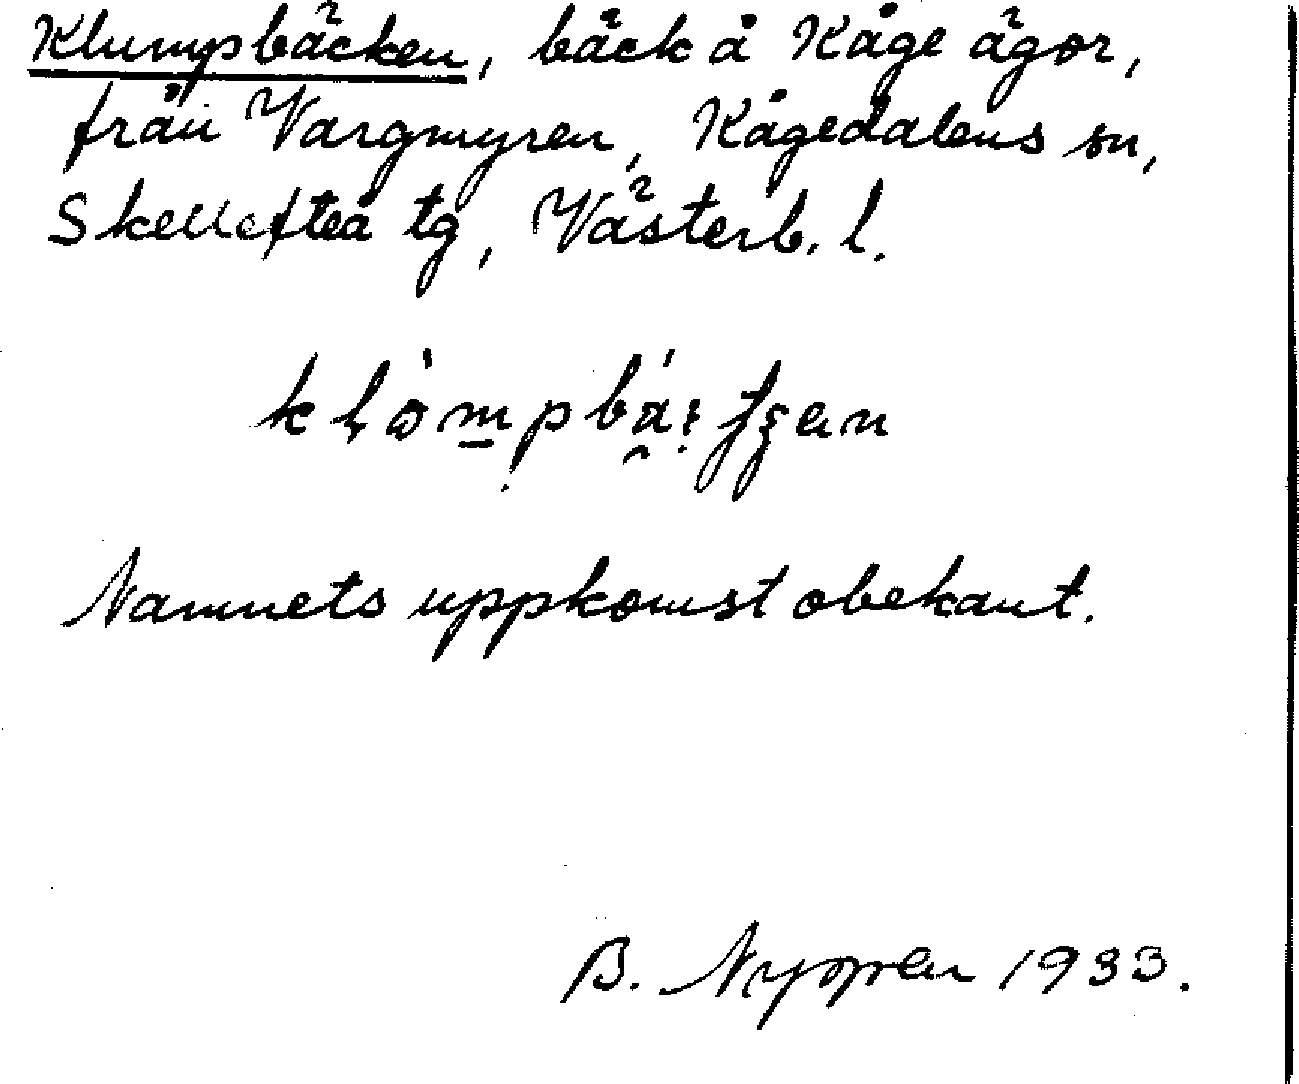 Klumpbäcken, bäck å Kåge ägor,
från Vargmyren, Kågedalens sn,
Skellefteå tg, Västerb. l.
Namnets uppkomst obekant.
B. Nyppren 1933.